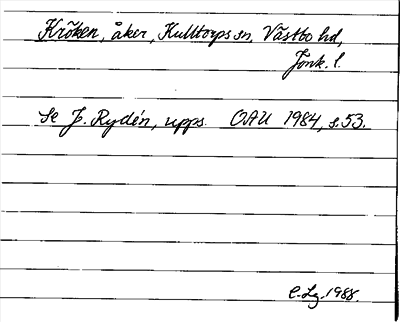 Kröken, åker, Kulltorps sn, Västbo hd,
Jönk. l.
Se J. Rydén, upps. OAU 1984, s. 53.
C. Lg. 1988.